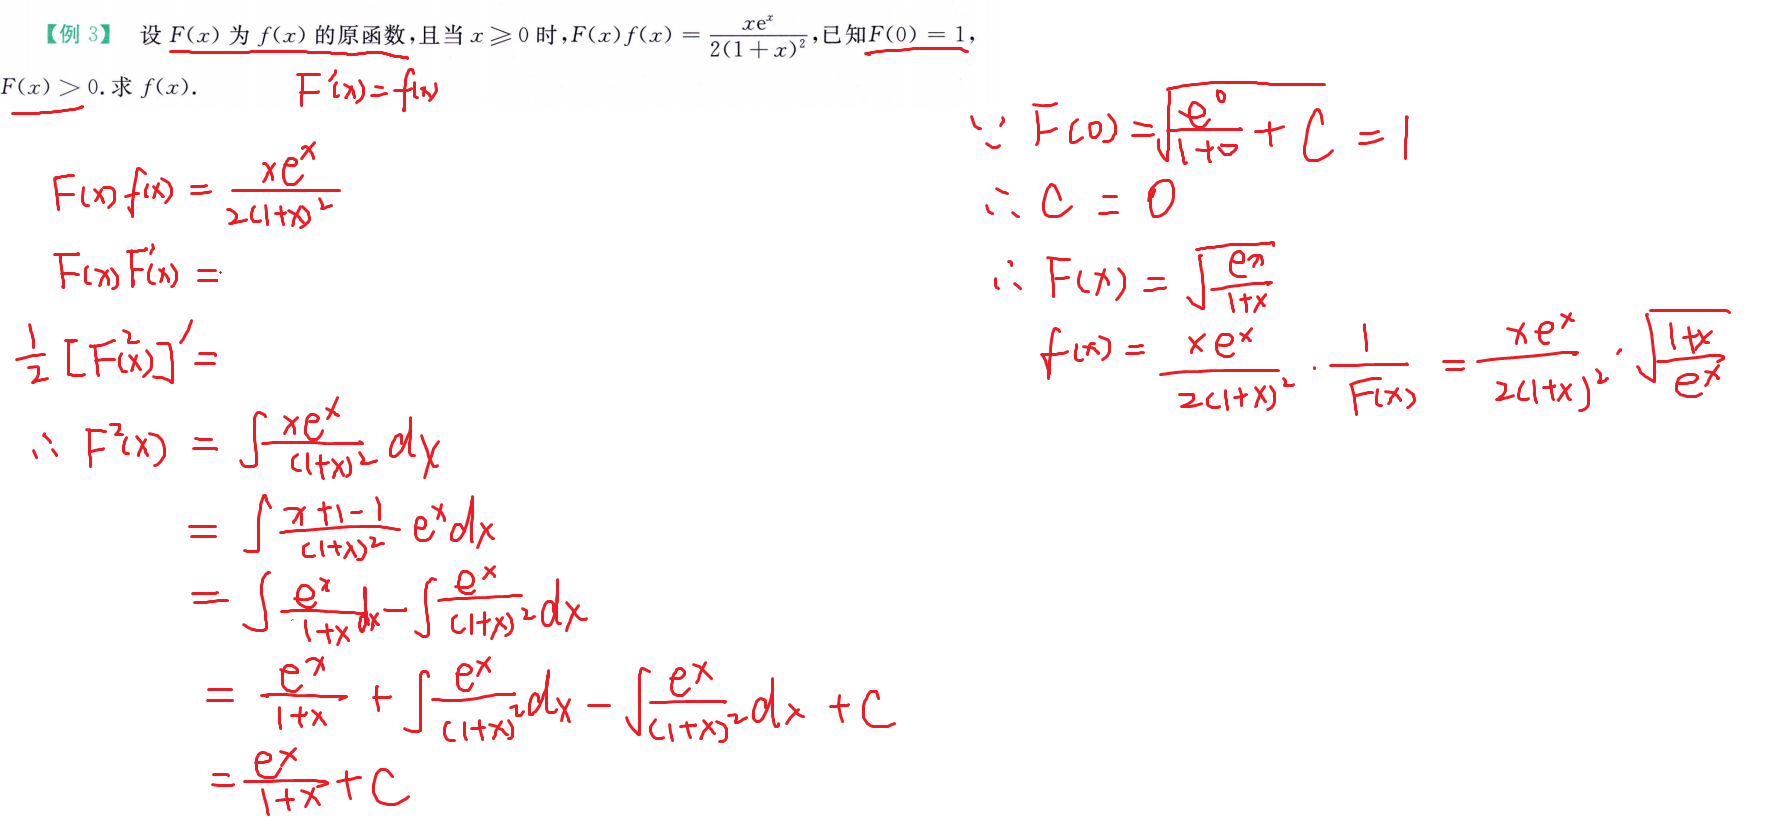 【例 3】 设 F(x) 为 f(x) 的原函数,且当 x ≥ 0 时,F(x)f(x) = xe^x/2(1+x)²,已知F(0) = 1,
F(x) > 0. 求 f(x).
F′(x) = f(x)
F(x)f(x) = xe^x/2(1+x)²
F(x)F′(x) =
1/2 [F²(x)]′ =
∴ F²(x) = ∫ xe^x/(1+x)² dx
= ∫ x+1-1/(1+x)² e^x dx
= ∫ e^x/1+x dx - ∫ e^x/(1+x)² dx
= e^x/1+x + ∫ e^x/(1+x)² dx - ∫ e^x/(1+x)² dx + C
= e^x/1+x + C
∵ F(0) = √(e^0/1+0 + C) = 1
∴ C = 0
∴ F(x) = √(e^x/1+x)
f(x) = xe^x/2(1+x)² · 1/F(x) = xe^x/2(1+x)² · √(1+x/e^x)